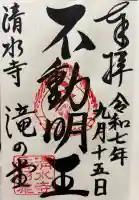 奉拝
令和七年
九月十五日
不動明王
清水寺
滝の堂